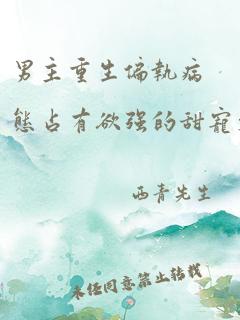 男主重生偏執病
態占有欲强的甜寵
西青先生
未经同意禁止转载